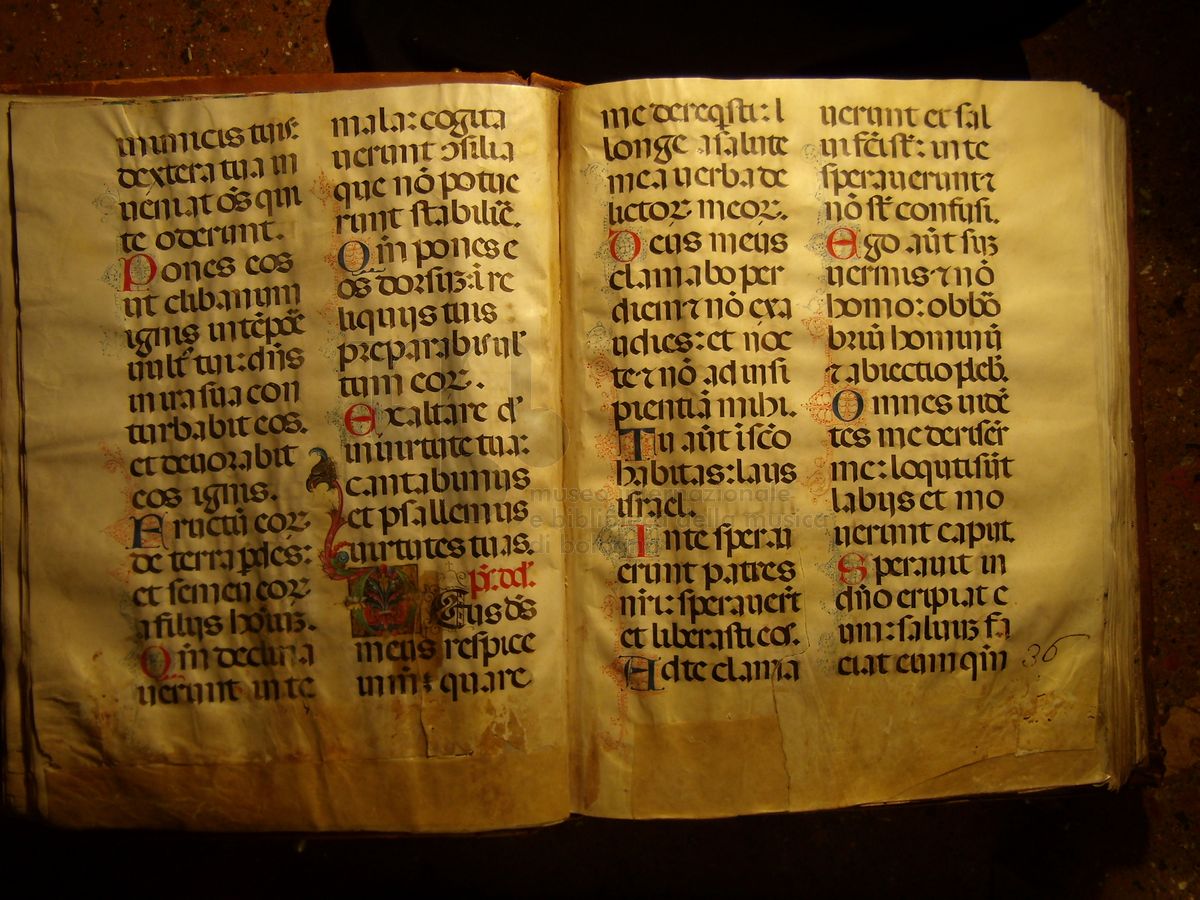 inimicis tuis:
dextera tua in
ueniat oẽs qui
te oderunt.
Pones eos
ut clibanum
ignis in tẽpoꝛe
uult᷒ tui: dñs
in ira sua con
turbabit eos.
et deuorabit
eos ignis.
Fructũ eoꝛ
de terra pdes:
et semen eoꝛ
a filijs hoĩuꝫ.
Qm̃ declina
uerunt in te
mala: cogita
uerunt ↄsilia
que nõ potue
runt stabilir̃e.
Qm̃ pones e
os doꝛsuꝫ: ĩ re
liquijs tuis
preparabis uul᷒
tum eoꝛ.
Exaltare dñe
in uirtute tua:
cantabimus
et psallemus
uirtutes tuas.
Eus ds̃
meus respice
in m̃: quare
me dereqsti: l
longe a salute
mea uerba de
lictoꝛ meoꝛ.
Deus meus
clamabo per
diem ⁊ nõ exa
udies: et noc
te ⁊ nõ ad insi
pientiã mihi.
Tu aũt ĩ sc̃o
habitas: laus
israel.
In te spera
erunt patres
nr̃i: sperauer̃t
et liberasti eos.
Ad te clama
uerunt et sal
ui fc̃i sũt: in te
sperauerunt ⁊
nõ sũt confusi.
Ego aũt suꝫ
uermis ⁊ nõ
homo: obbõ
briũ hominũ
⁊ abiectio pleb.
Omnes uidẽ
tes me deriser̃
me: loquti sũt
labijs et mo
uerunt caput.
Sperauit in
dño eripiat e
um: saluuꝫ fa
ciat eum qm̃
36
museo internazionale
e biblioteca della musica
di bologna